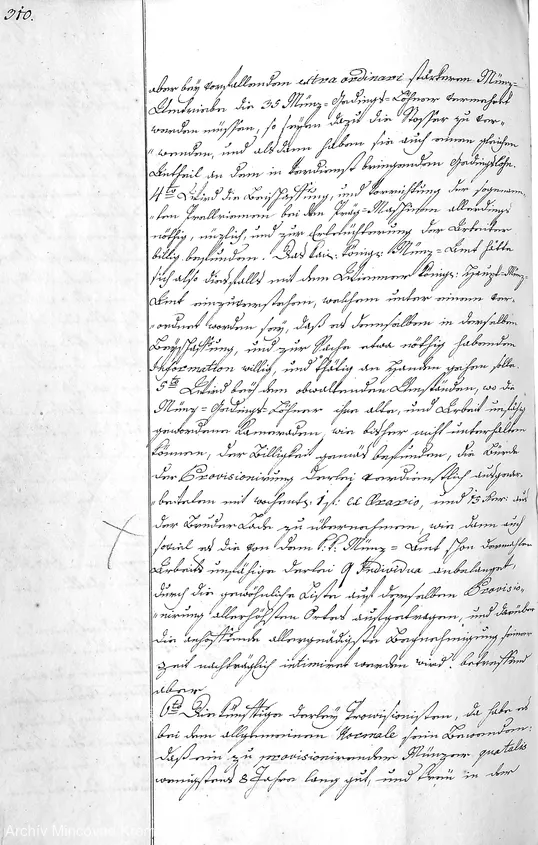 310.
aber bey vorfallenden extra ordinari stärkeren Münz-
Umtriebe die 35 Münz-Gedings-Löhner vermehrt
werden müssten, so seyen dazu die Stosser zu ver-
wenden, und alsdann haben sie auch einen gleichen
Antheil an dem in Verdienst bringenden Gedinglohn.
4to Wird die Beischaffung, und Vorrichtung der sogenann-
ten Prellriemen bei den Präg-Maschinen allerdings
nöthig, nüzlich, und zur Erleichterung der Arbeiter
billig befunden. Das kais: königl: Münz-Amt hätte
sich also diesfalls mit dem Wienner königl: Haupt-Münz-
Amt einzuverstehen, welchem unter einem ver-
ordnet worden sey, daß es demselben in derselben
Beyschaffung, und zur Sache etwa nöthig habenden
Information willig, und thätig an Handen gehen solle.
5to Wird bey dem obwaltenden Umständen, wo die
Münz-Gedings-Löhner ihre alte, und Arbeit unfähig
gewordene Kameraden, wie bisher nicht unterhalten
können, der Billigkeit gemäs befunden, die Bürde
der Provisionirung derlei verdienstlich
mit wochentl: 1 f: ex Aerario, und 15 Xer: aus
der Bruder Lade zu übernehmen, wie dann auch
soviel es die von dem k: k: Münz-Amt schon dermahlen
Arbeits unfähige derlei 9 Individua anbelanget,
durch die gewöhnliche Liste auf derselben Provisio-
nirung allerhöchsten Ortes angetragen, und darüber
die allergnädigste Begnehmigung seiner
Zeit nachträglich intimiret werden wird. betreffend
aber
6to Die künftige derley Provisionisten, da habe es
bei dem allgemeinen Normale sein Bewenden:
daß ein zu provisionirender Münzer, qua talis
wenigstens 8 Jahre lang gut, und treu in der
Archiv Mincovne Krem